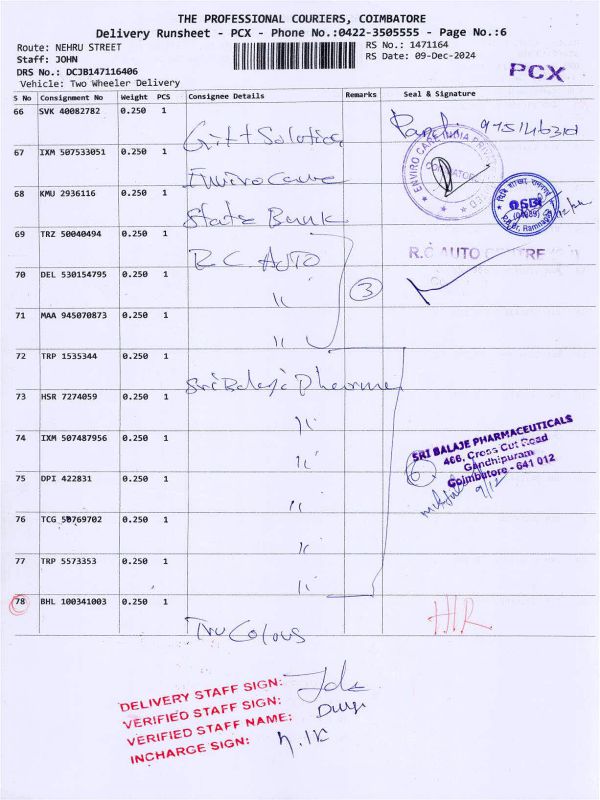 THE PROFESSIONAL COURIERS, COIMBATORE
Delivery Runsheet - PCX - Phone No.:0422-3505555 - Page No.:6
Route: NEHRU STREET
RS No.: 1471164
Staff: JOHN
RS Date: 09-Dec-2024
DRS No.: DCJB147116406
PCX
Vehicle: Two Wheeler Delivery
S No Consignment No Weight PCS Consignee Details Remarks Seal & Signature
66 SVK 40082782 0.250 1
67 IXM 507533051 0.250 1
Enviro Care
ENVIRO CARE INDIA PRIV
68 KMU 2936116 0.250 1
State Bank
69 TRZ 50040494 0.250 1
R.C. AUTO
R.C AUTO CENTRE
70 DEL 530154795 0.250 1
"
3
71 MAA 945070873 0.250 1
"
72 TRP 1535344 0.250 1
Sri Balaji Pharma
73 HSR 7274059 0.250 1
"
74 IXM 507487956 0.250 1
"
SRI BALAJE PHARMACEUTICALS
466, Cross Cut Road
Gandhipuram
Coimbatore - 641 012
6
9/12
75 DPI 422831 0.250 1
"
76 TCG 50769702 0.250 1
"
77 TRP 5573353 0.250 1
"
78 BHL 100341003 0.250 1
Tru Colous
DELIVERY STAFF SIGN:
VERIFIED STAFF SIGN:
VERIFIED STAFF NAME:
INCHARGE SIGN: